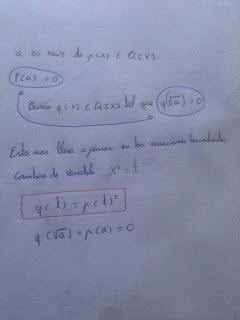 a es raiz de p(x) ∈ Q[x]
p(a) = 0
Busco q(x) ∈ Q[x] tal que q(√a) = 0
Esto nos lleva a pensar en las ecuaciones bicuadradas
Cambio de variable x² = t
q(t) = p(t)²
q(√a) = p(a) = 0